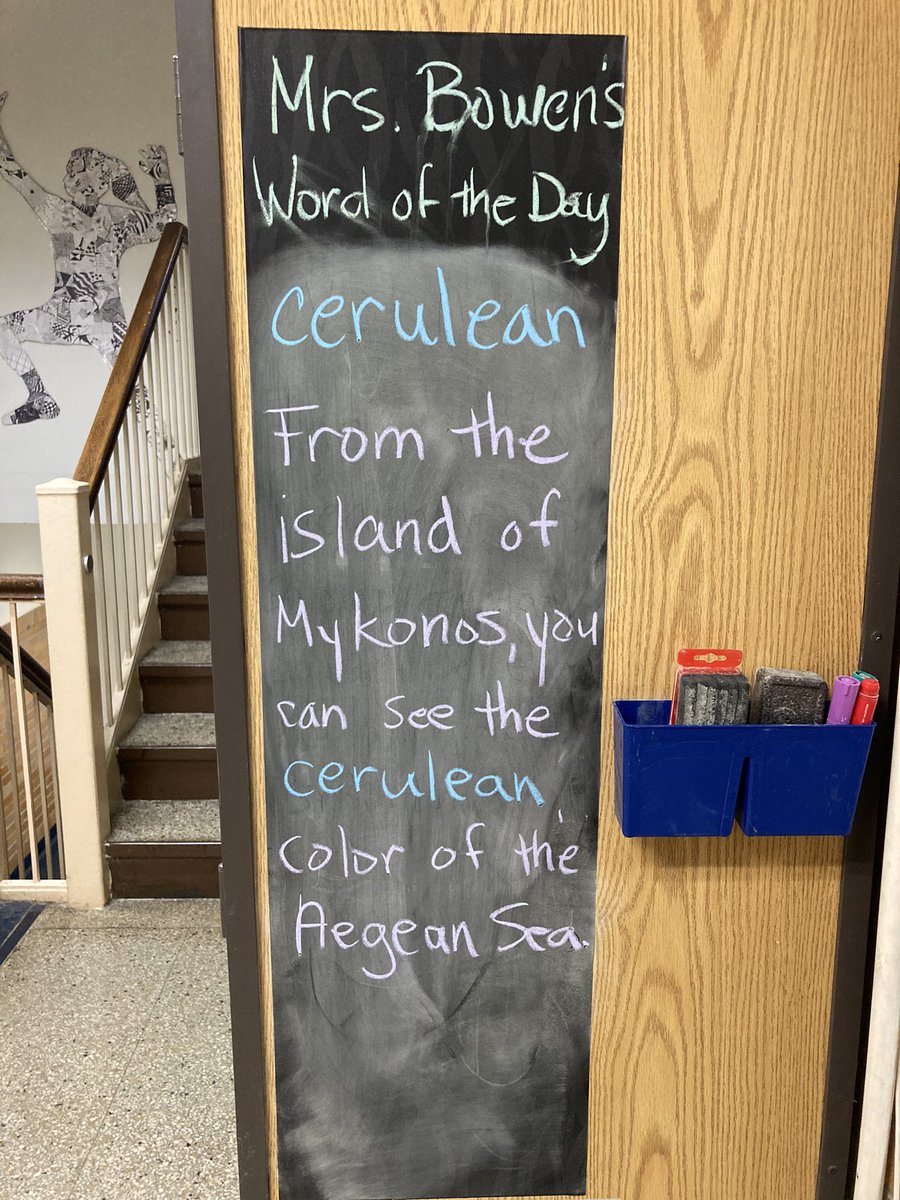 Mrs. Bowen's
Word of the Day
cerulean
From the
island of
Mykonos, you
can see the
cerulean
color of the
Aegean Sea.